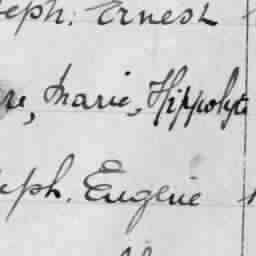 seph. Ernest
re, Marie, Hippolyte
seph. Eugène